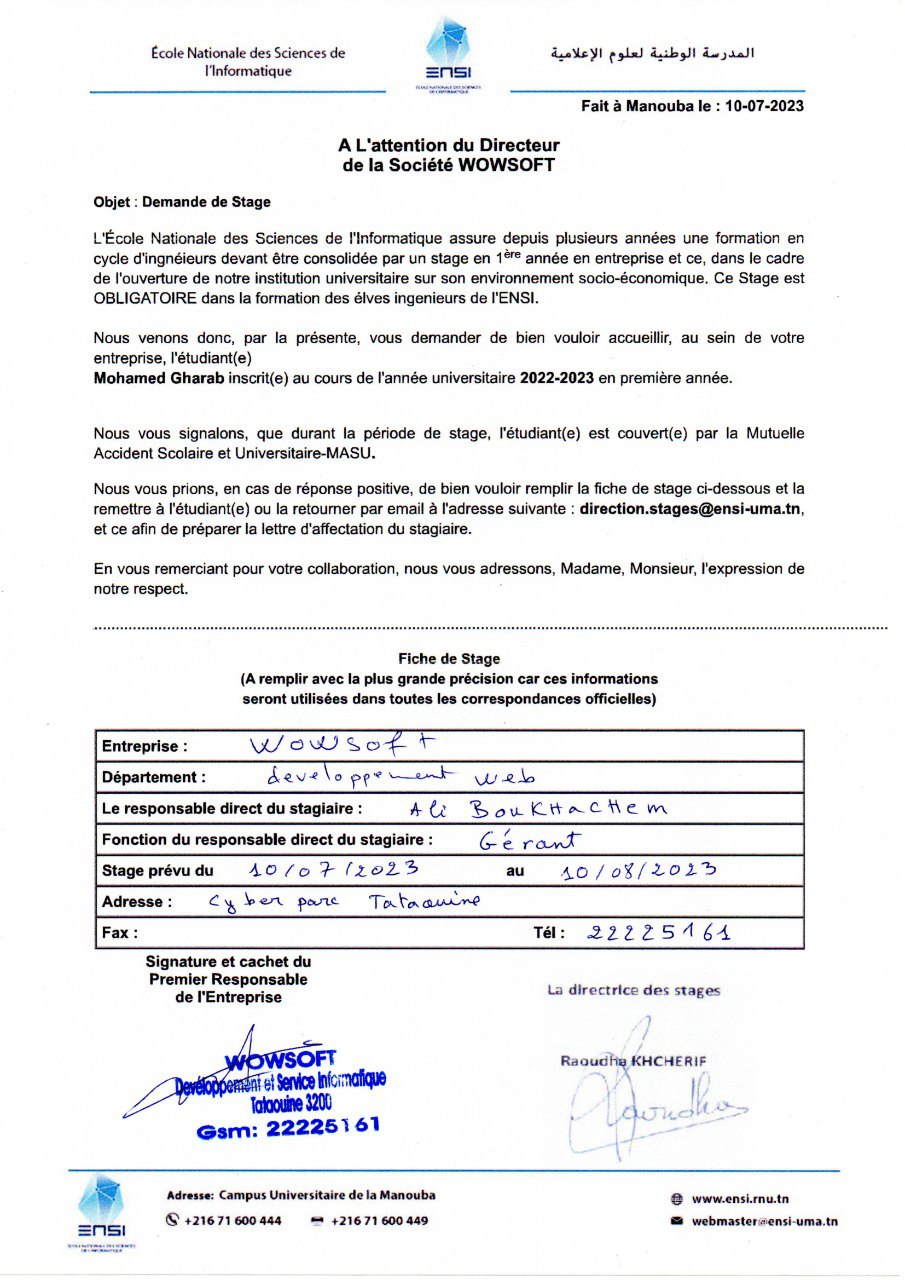 École Nationale des Sciences de
l'Informatique
ENSI
ÉCOLE NATIONALE DES SCIENCES
DE L'INFORMATIQUE
المدرسة الوطنية لعلوم الإعلامية
Fait à Manouba le : 10-07-2023
A L'attention du Directeur
de la Société WOWSOFT
Objet : Demande de Stage
L'École Nationale des Sciences de l'Informatique assure depuis plusieurs années une formation en
cycle d'ingnéieurs devant être consolidée par un stage en 1ère année en entreprise et ce, dans le cadre
de l'ouverture de notre institution universitaire sur son environnement socio-économique. Ce Stage est
OBLIGATOIRE dans la formation des élves ingenieurs de l'ENSI.
Nous venons donc, par la présente, vous demander de bien vouloir accueillir, au sein de votre
entreprise, l'étudiant(e)
Mohamed Gharab inscrit(e) au cours de l'année universitaire 2022-2023 en première année.
Nous vous signalons, que durant la période de stage, l'étudiant(e) est couvert(e) par la Mutuelle
Accident Scolaire et Universitaire-MASU.
Nous vous prions, en cas de réponse positive, de bien vouloir remplir la fiche de stage ci-dessous et la
remettre à l'étudiant(e) ou la retourner par email à l'adresse suivante : direction.stages@ensi-uma.tn,
et ce afin de préparer la lettre d'affectation du stagiaire.
En vous remerciant pour votre collaboration, nous vous adressons, Madame, Monsieur, l'expression de
notre respect.
Fiche de Stage
(A remplir avec la plus grande précision car ces informations
seront utilisées dans toutes les correspondances officielles)
Entreprise : WOWSOFT
Département : developpement web
Le responsable direct du stagiaire : Ali BOUKHACHEM
Fonction du responsable direct du stagiaire : Gérant
Stage prévu du 10/07/2023 au 10/08/2023
Adresse : Cyber parc Tataouine
Fax : Tél : 22225161
Signature et cachet du
Premier Responsable
de l'Entreprise
La directrice des stages
WOWSOFT
Développement et Service Informatique
Tataouine 3200
Gsm: 22225161
Raoudha KHCHERIF
Raoudha
ENSI
ÉCOLE NATIONALE DES SCIENCES
DE L'INFORMATIQUE
Adresse: Campus Universitaire de la Manouba
+216 71 600 444 +216 71 600 449
www.ensi.rnu.tn
webmaster@ensi-uma.tn